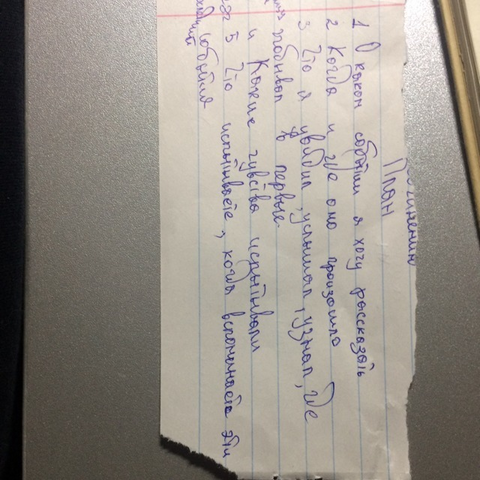 План
1 О каком событии я хочу рассказать
2 Когда и где оно произошло
3 Что я увидил, услышал, узнал, где
побывал в первые.
Какие чувства испытывали
5 Что испытываете, когда вспоминаете эти
события